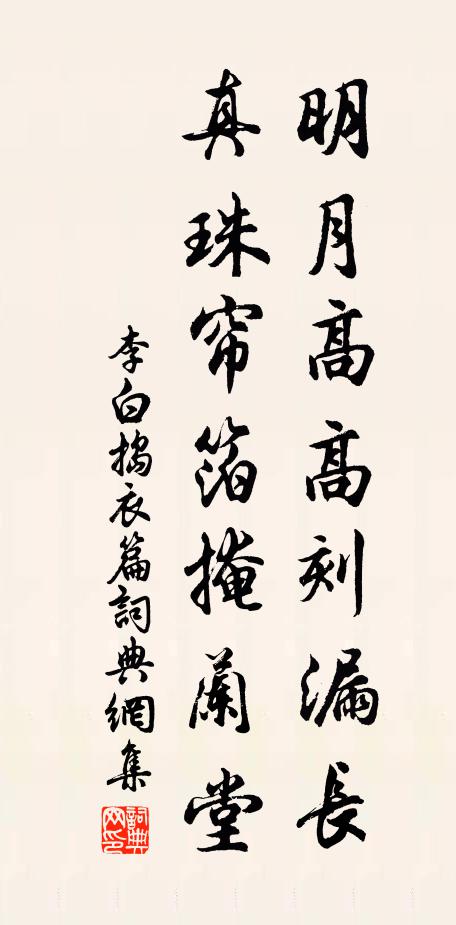 明月高高刻漏長
真珠帘箔掩蘭堂
李白搗衣篇詞典網集
詞典网印